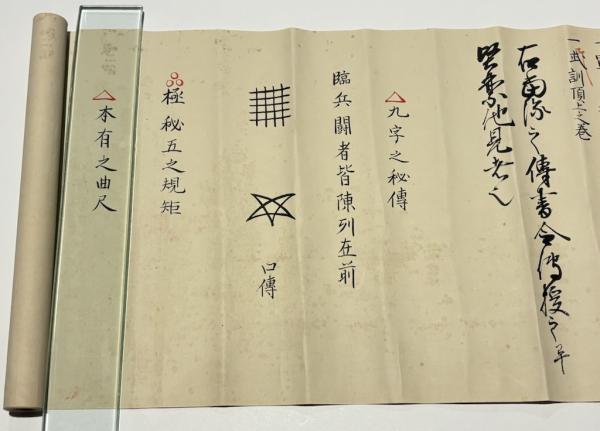 一武訓頂上之巻
右當流之傳書令傳授之畢
九字之秘傳
臨兵闘者皆陳列在前
口傳
極秘五之規矩
本有之曲尺